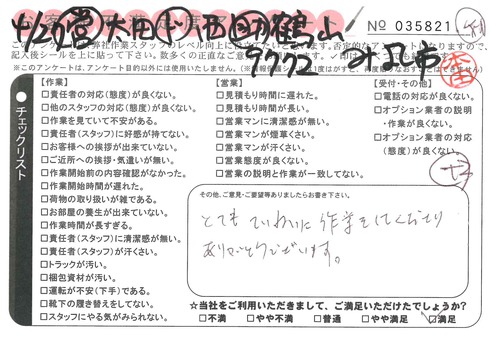 4/25 営 大田 中 八西 助 鶴山
№ 035821
このアンケートは、弊社作業スタッフのレベル向上に役立てたいと思います。お宅的なアンケートになりますので、
記入後シールを上に貼って下さい。数多くの正直なご意見
※このアンケートは、アンケート目的以外には使用いたしません。
チェックリスト
【作業】
□責任者の対応(態度)が良くない。
□他のスタッフの対応(態度)が良くない。
□作業を見ていて不安がある。
□責任者(スタッフ)に好感が持てない。
□お客様への挨拶が出来ていない。
□ご近所への挨拶・気遣いが無い。
□作業開始前の内容確認がなかった。
□作業開始時間が遅れた。
□荷物の取り扱いが雑である。
□お部屋の養生が出来ていない。
□作業時間が長すぎる。
□責任者(スタッフ)に清潔感が無い。
□責任者(スタッフ)が汗くさい。
□トラックが汚い。
□梱包資材が汚い。
□運転が不安(下手)である。
□靴下の履き替えをしてない。
□スタッフにやる気がみられない。
【営業】
□見積もり時間に遅れた。
□見積もり時間が長い。
□営業マンに清潔感が無い。
□営業マンが煙草くさい。
□営業マンが汗くさい。
□営業態度が良くない。
□営業の説明と作業が一致してない。
【受付・その他】
□電話の対応が良くない。
□オプション業者の説明
・作業が良くない。
□オプション業者の対応
(態度)が良くない。
その他、ご意見・ご要望等ありましたらお書き下さい。
とても ていねいに 作業をしてくださり
ありがとうございます。
☆当社をご利用いただきまして、ご満足いただけたでしょうか?
□不満 □やや不満 □普通 □やや満足 ☑満足